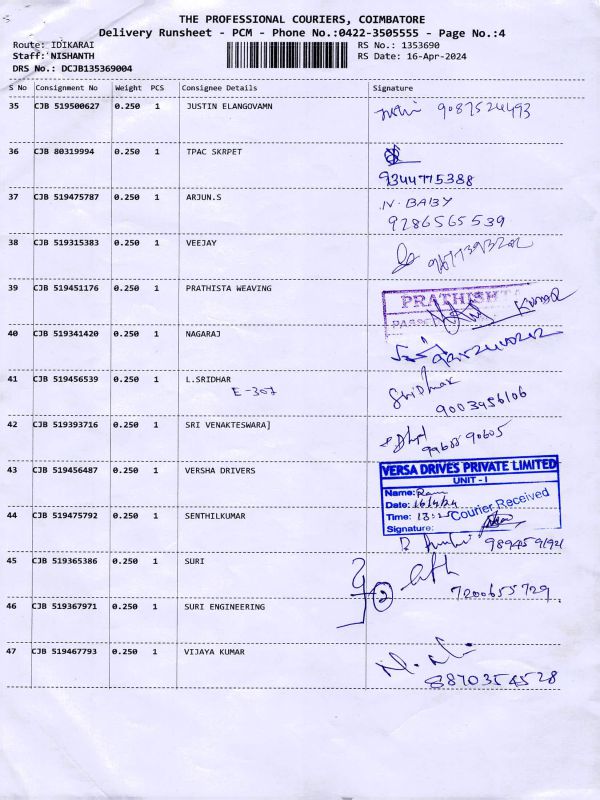 THE PROFESSIONAL COURIERS, COIMBATORE
Delivery Runsheet - PCM - Phone No.:0422-3505555 - Page No.:4
Route: IDIKARAI RS No.: 1353690
Staff: NISHANTH RS Date: 16-Apr-2024
DRS No.: DCJB135369004
S No Consignment No Weight PCS Consignee Details Signature
35 CJB 519500627 0.250 1 JUSTIN ELANGOVAMN 9087524493
36 CJB 80319994 0.250 1 TPAC SKRPET
9344775388
37 CJB 519475787 0.250 1 ARJUN.S N. BABY
9286565539
38 CJB 519315383 0.250 1 VEEJAY
39 CJB 519451176 0.250 1 PRATHISTA WEAVING PRATHISHTA
KUMAR
40 CJB 519341420 0.250 1 NAGARAJ
41 CJB 519456539 0.250 1 L.SRIDHAR Sridhar
E-307 9003956106
42 CJB 519393716 0.250 1 SRI VENAKTESWARA]
43 CJB 519456487 0.250 1 VERSHA DRIVERS VERSA DRIVES PRIVATE LIMITED
UNIT - I
Name: Ram
Date: 16/4/24
Time: Courier Received
Signature:
44 CJB 519475792 0.250 1 SENTHILKUMAR
45 CJB 519365386 0.250 1 SURI
2 7200655729
46 CJB 519367971 0.250 1 SURI ENGINEERING
47 CJB 519467793 0.250 1 VIJAYA KUMAR
8870354528